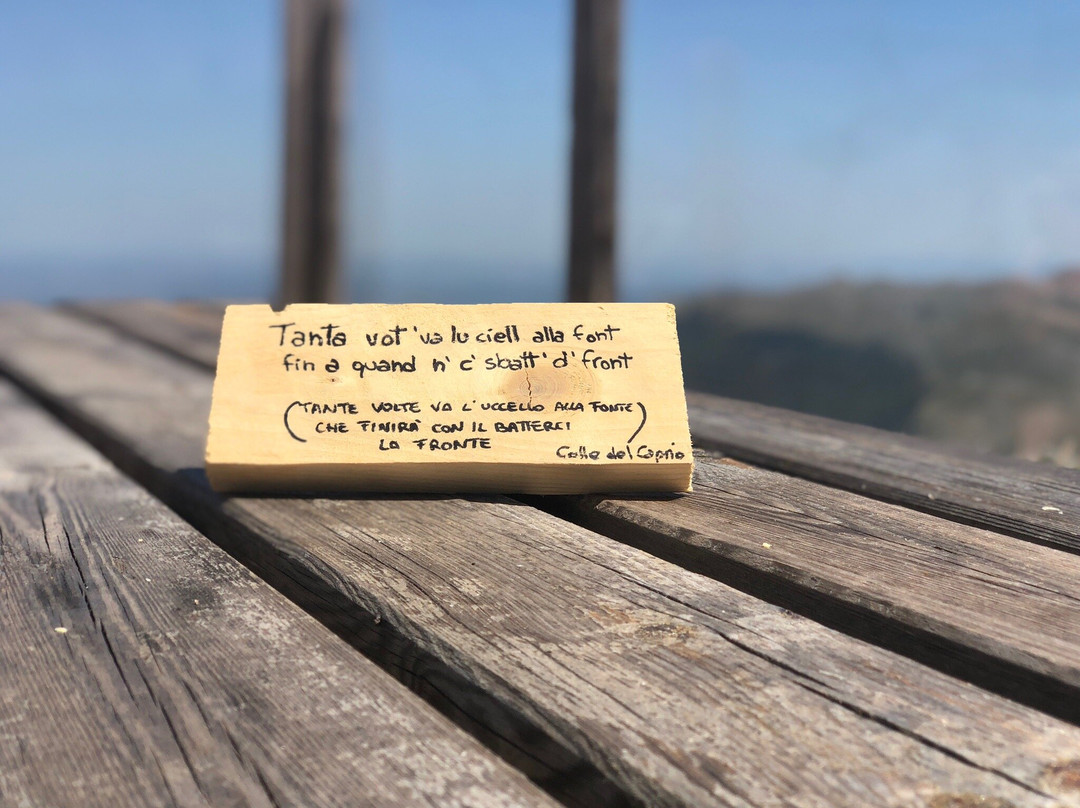 Tanta vot' va lu ciell alla font
fin a quand n' c' sbatt' d' front
(TANTE VOLTE VA L'UCCELLO ALLA FONTE
CHE FINIRÀ CON IL BATTERCI
LA FRONTE)
Colle del Caprio